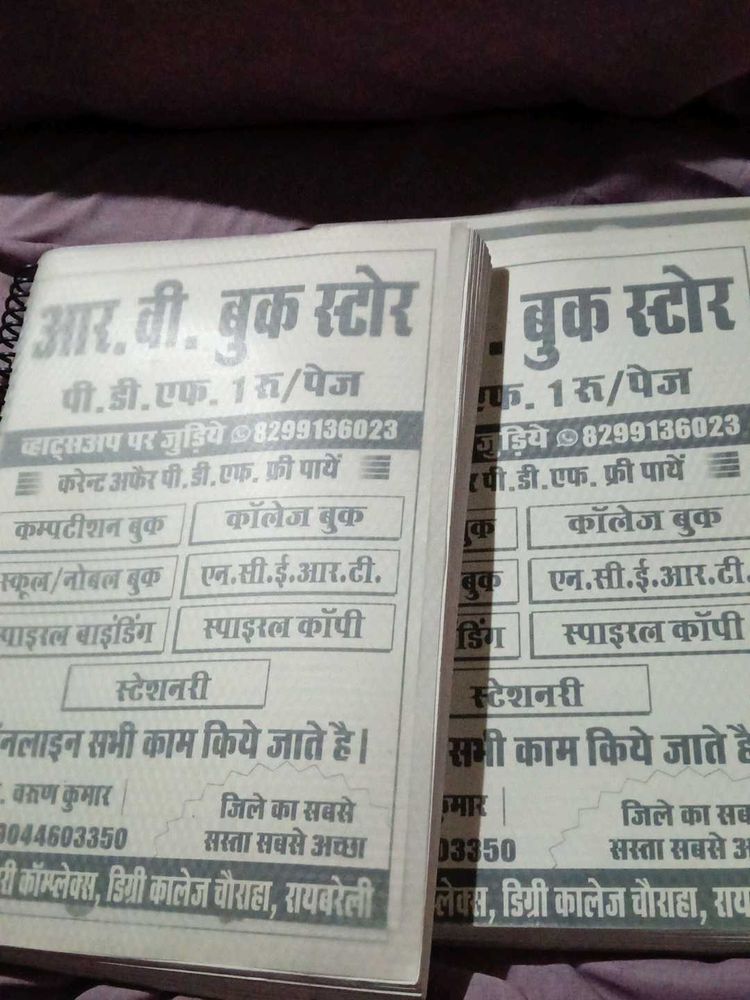 आर.वी. बुक स्टोर
पी.डी.एफ. 1रु/पेज
व्हाट्सअप पर जुड़िये 8299136023
करेन्ट अफैर पी.डी.एफ. फ्री पायें
कम्पटीशन बुक कॉलेज बुक
स्कूल/नोबल बुक एन.सी.ई.आर.टी.
स्पाइरल बाइंडिंग स्पाइरल कॉपी
स्टेशनरी
नलाइन सभी काम किये जाते है।
. वरुण कुमार
9044603350
जिले का सबसे
सस्ता सबसे अच्छा
री कॉम्प्लेक्स, डिग्री कालेज चौराहा, रायबरेली
. बुक स्टोर
एफ. 1रु/पेज
जुड़िये 8299136023
पी.डी.एफ. फ्री पायें
बुक कॉलेज बुक
बुक एन.सी.ई.आर.टी.
डिंग स्पाइरल कॉपी
स्टेशनरी
सभी काम किये जाते है
कुमार
03350
जिले का सब
सस्ता सबसे अ
लेक्स, डिग्री कालेज चौराहा, राय